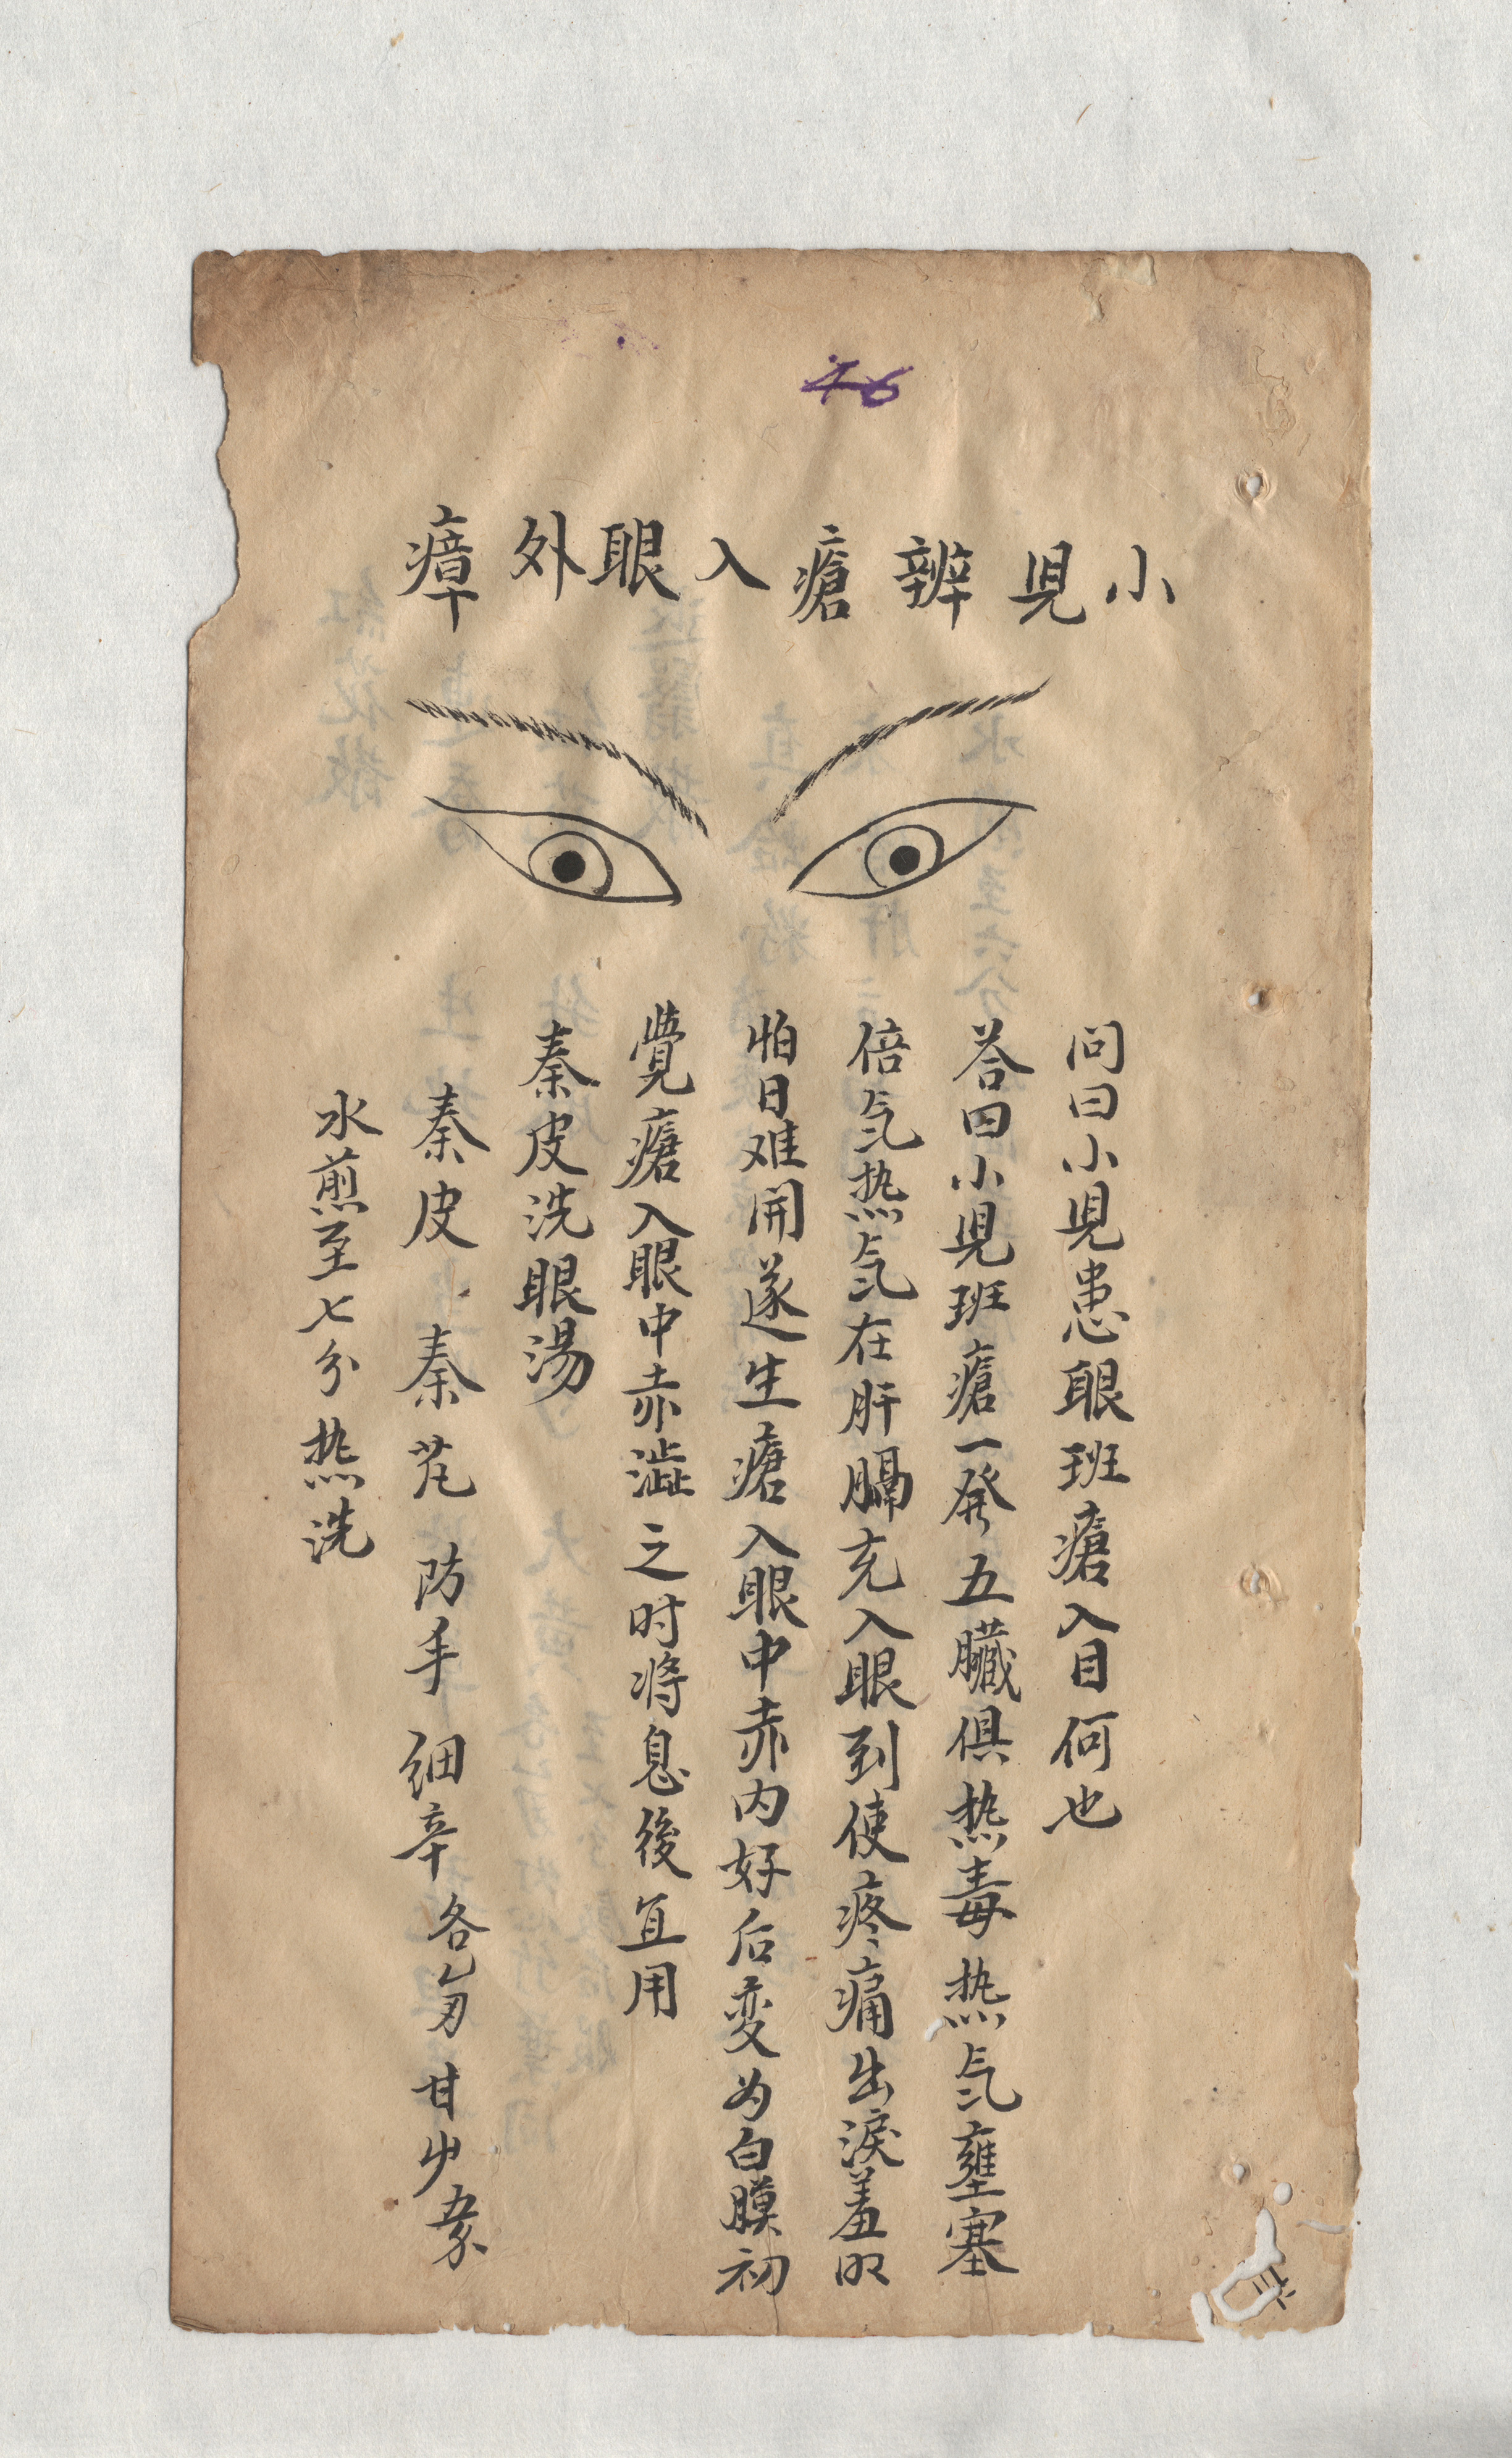 46
小児辨瘡入眼外瘴
问曰小児患眼班瘡入目何也
荅曰小児班瘡一発五臓俱热毒热気壅塞
倍気热気在肝膈充入眼到使疼痛出淚羞明
怕日难開遂生瘡入眼中赤内好后変为白膜初
覺瘡入眼中赤澁之时将息後宜用
秦皮洗眼湯
秦皮 秦芃 防手 细辛 各 甘屮
水煎至七分热洗